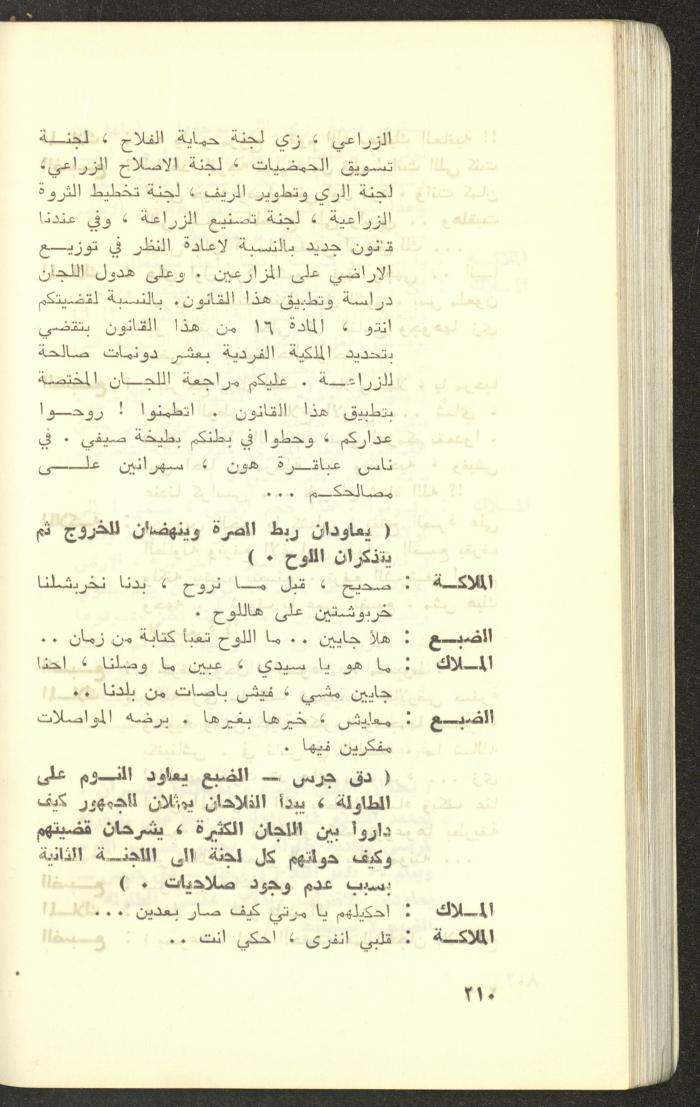 الزراعي ، زي لجنة حماية الفلاح ، لجنــة
تسويق الحمضيات ، لجنة الاصلاح الزراعي،
لجنة الري وتطوير الريف ، لجنة تخطيط الثروة
الزراعية ، لجنة تصنيع الزراعة ، وفي عندنا
قانون جديد بالنسبة لاعادة النظر في توزيــع
الاراضي على المزارعين . وعلى هدول اللجان
دراسة وتطبيق هذا القانون. بالنسبة لقضيتكم
انتو ، المادة ١٦ من هذا القانون بتقضي
بتحديد الملكية الفردية بعشر دونمات صالحة
للزراعــة . عليكم مراجعة اللجــان المختصة
بتطبيق هذا القانون . اتطمنوا ! روحــوا
عداركم ، وحطوا في بطنكم بطيخة صيفي . في
ناس عباقــرة هون ، سهرانين علــى
مصالحكــم ...
( يعاودان ربط الصرة وينهضان للخروج ثم
يتذكران اللوح . )
الملاكــة : صحيح ، قبل مــا نروح ، بدنا نخربشلنا
خربوشتين على هاللوح .
الضبــع : هلأ جايين .. ما اللوح تعبأ كتابة من زمان ..
المــلاك : ما هو يا سيدي ، عبين ما وصلنا ، احنا
جايين مشي ، فيش باصات من بلدنا ..
الضبــع : معايش ، خيرها بغيرها . برضه المواصلات
مفكرين فيها .
( دق جرس – الضبع يعاود النــوم على
الطاولة ، يبدأ الفلاحان يمثلان للجمهور كيف
داروا بين اللجان الكثيرة ، يشرحان قضيتهم
وكيف حولتهم كل لجنة الى اللجنــة الثانية
بسبب عدم وجود صلاحيات . )
المــلاك : احكيلهم يا مرتي كيف صار بعدين ...
الملاكــة : قلبي انفرى ، احكي انت ..
٢١٠